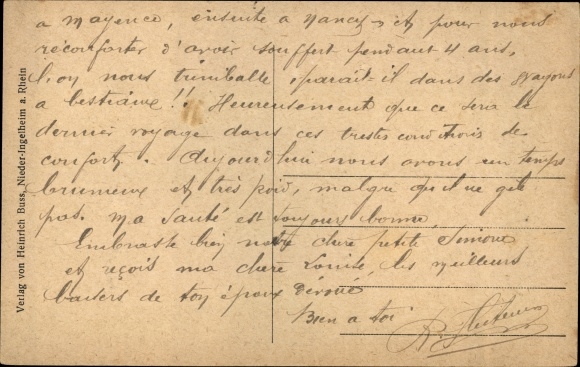 a Mayence, ensuite a Nancy, et pour nous
réconforter d'avoir souffert pendant 4 ans,
l'on nous trimballe parait-il dans des wagons
a bestiaux!! Heureusement que ce sera le
dernier voyage dans ces tristes conditions de
confort. Aujourd'hui nous avons un temps
brumeux et très froid, malgré qu'il ne gèle
pas. Ma santé est toujours bonne
Embrasse bien notre chère petite Simone
et reçois ma chère Louise, les meilleurs
baisers de ton époux dévoué
Bien a toi
Verlag von Heinrich Buss, Nieder-Ingelheim a. Rhein